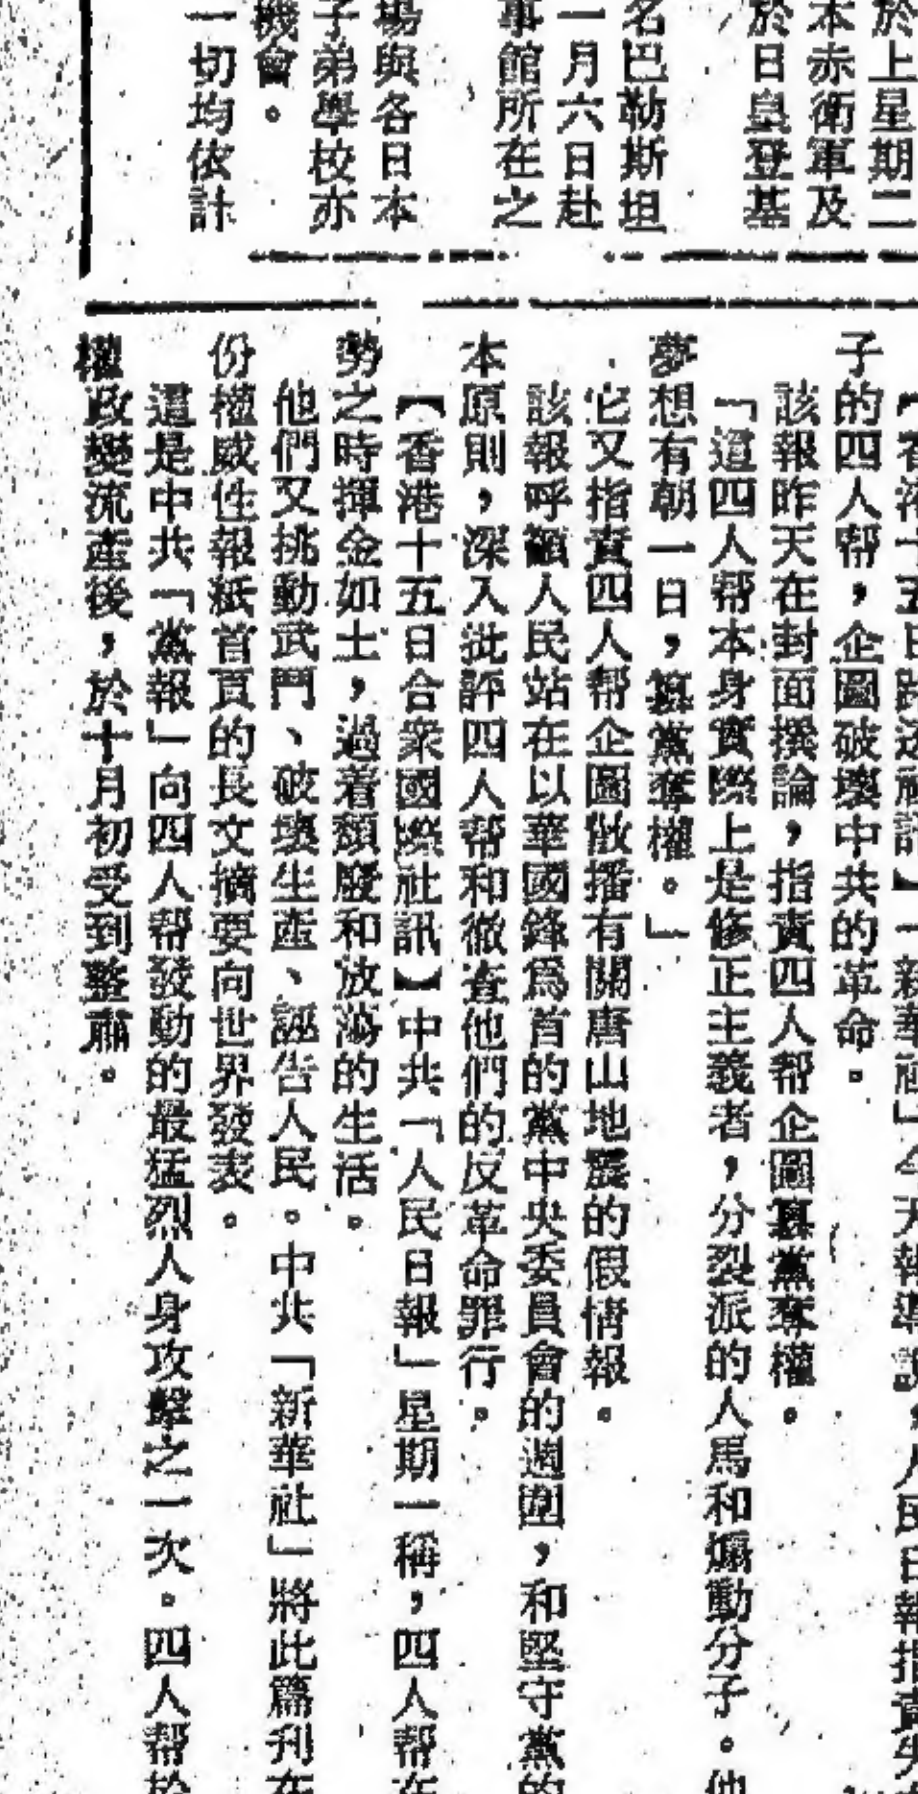 於上星期二
本赤衛軍及
於日皇登基
名巴勒斯坦
一月六日赴
事館所在之
場與各日本
子弟學校亦
機會。
一切均依計
【香港十五日路透社訊】「新華社」今天報導說，人民日報指責
子的四人幫，企圖破壞中共的革命。
該報昨天在封面撰論，指責四人幫企圖篡黨奪權。
「這四人幫本身實際上是修正主義者，分裂派的人馬和煽動分子。他
夢想有朝一日，篡黨奪權。」
它又指責四人幫企圖散播有關唐山地震的假情報。
該報呼籲人民站在以華國鋒爲首的黨中央委員會的週圍，和堅守黨的
本原則，深入批評四人幫和徹查他們的反革命罪行。
【香港十五日合衆國際社訊】中共「人民日報」星期一稱，四人幫在
勢之時揮金如土，過着頹廢和放蕩的生活。
他們又挑動武鬥、破壞生產、誣告人民。中共「新華社」將此篇刊在
份權威性報紙首頁的長文摘要向世界發表。
這是中共「黨報」向四人幫發動的最猛烈人身攻擊之一次。四人幫於
權政變流產後，於十月初受到整肅。